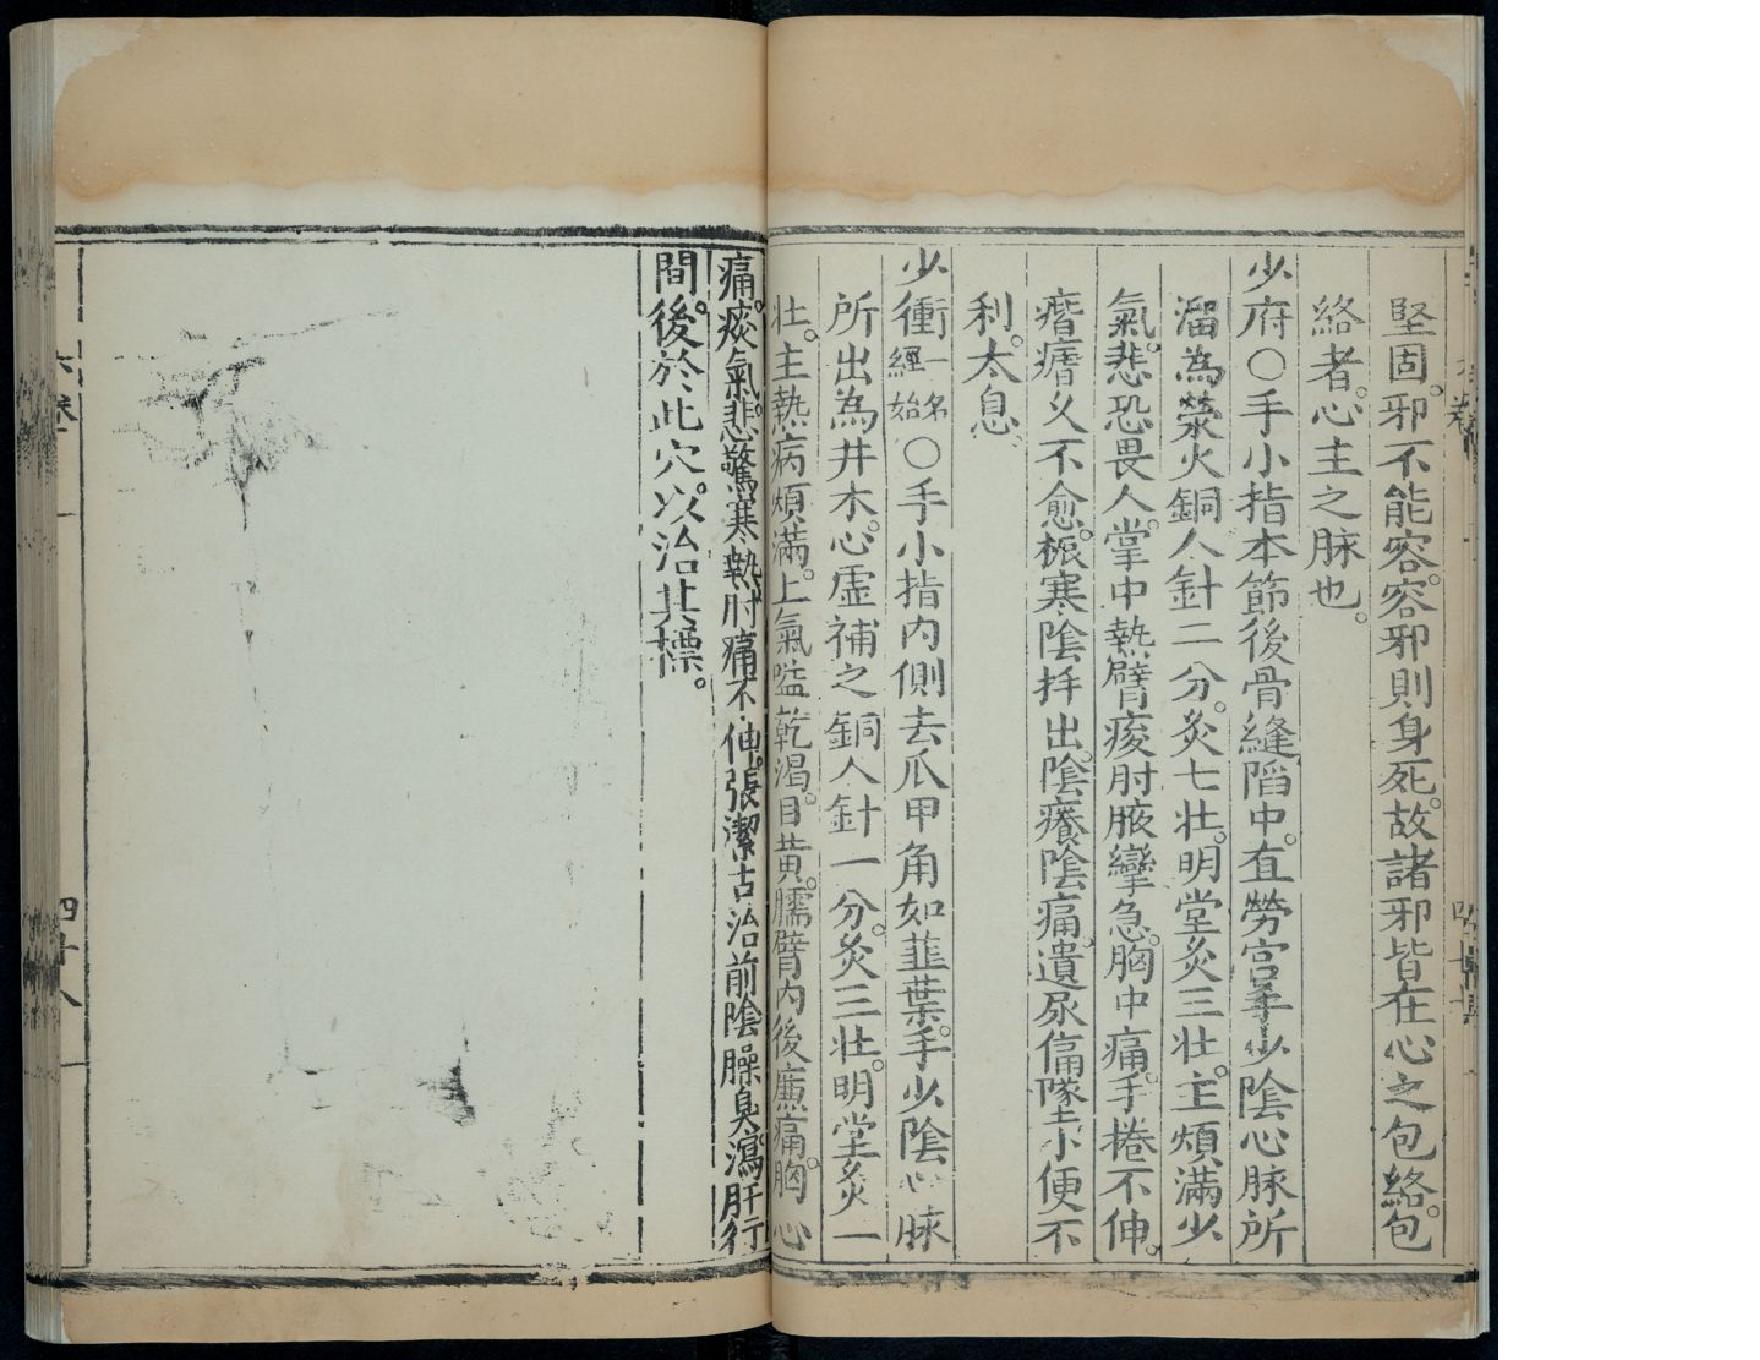 堅固。邪不能容。容邪則身死。故諸邪皆在心之包絡。包
絡者。心主之脉也。
少府○手小指本節後骨縫陷中。直勞宮手少陰心脉所
溜為滎火銅人針二分。灸七壯。明堂灸三壯。主煩滿少
氣。悲恐畏人。掌中熱臂痠肘腋攣急。胸中痛。手捲不伸。
痎瘧久不愈。振寒陰挺出。陰癢陰痛。遺尿偏墜小便不
利。太息。
少衝一名經始○手小指內側去爪甲角如韭葉。手少陰心脉
所出為井木。心虛補之銅人針一分。灸三壯。明堂灸一
壯。主熱病煩滿。上氣嗌乾渴。目黃。臑臂內後廉痛。胸心
痛。痰氣。悲驚寒熱肘痛不伸。張潔古治前陰臊臭。瀉肝行
間。後於此穴。以治其標。
六卷
四十八